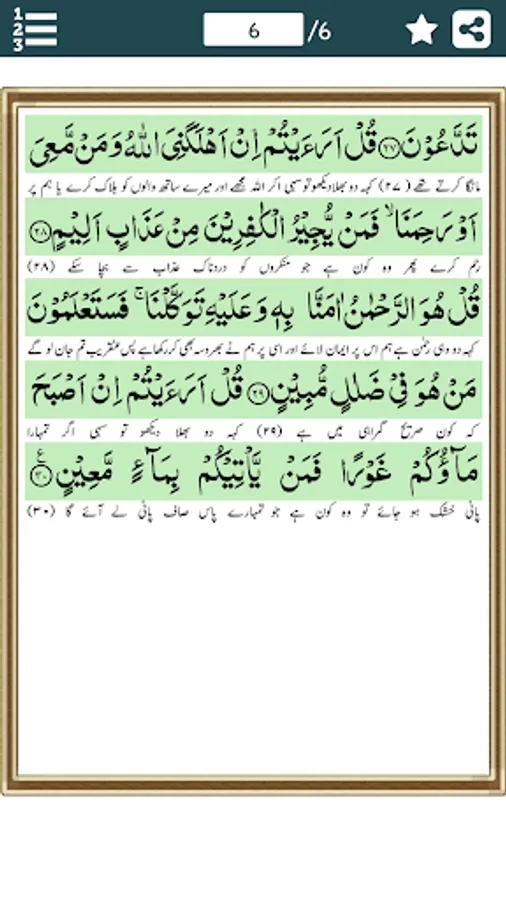 1
2
3
6 /6
تَدَّعُوْنَ ﴿۲۷﴾ قُلْ اَرَءَيْتُمْ اِنْ اَهْلَكَنِىَ اللّٰهُ وَمَنْ مَّعِىَ
مانگا کرتے تھے (۲۷) کہہ دو بھلا دیکھو تو سہی اگر اللہ مجھے اور میرے ساتھ والوں کو ہلاک کرے یا ہم پر
اَوْ رَحِمَنَا ۙ فَمَنْ يُّجِيْرُ الْكٰفِرِيْنَ مِنْ عَذَابٍ اَلِيْمٍ ﴿۲۸﴾
رحم کرے پھر وہ کون ہے جو منکروں کو دردناک عذاب سے بچا سکے (۲۸)
قُلْ هُوَ الرَّحْمٰنُ اٰمَنَّا بِهٖ وَعَلَيْهِ تَوَكَّلْنَا ۚ فَسَتَعْلَمُوْنَ
کہہ دو وہی رحمٰن ہے ہم اس پر ایمان لائے اور اسی پر ہم نے بھروسہ بھی کر رکھا ہے پس عنقریب تم جان لو گے
مَنْ هُوَ فِىْ ضَلٰلٍ مُّبِيْنٍ ﴿۲۹﴾ قُلْ اَرَءَيْتُمْ اِنْ اَصْبَحَ
کہ کون صریح گمراہی میں ہے (۲۹) کہہ دو بھلا دیکھو تو سہی اگر تمہارا
مَآؤُكُمْ غَوْرًا فَمَنْ يَّاْتِيْكُمْ بِمَآءٍ مَّعِيْنٍ ﴿۳۰﴾ ع
پانی خشک ہو جائے تو وہ کون ہے جو تمہارے پاس صاف پانی لے آئے گا (۳۰)